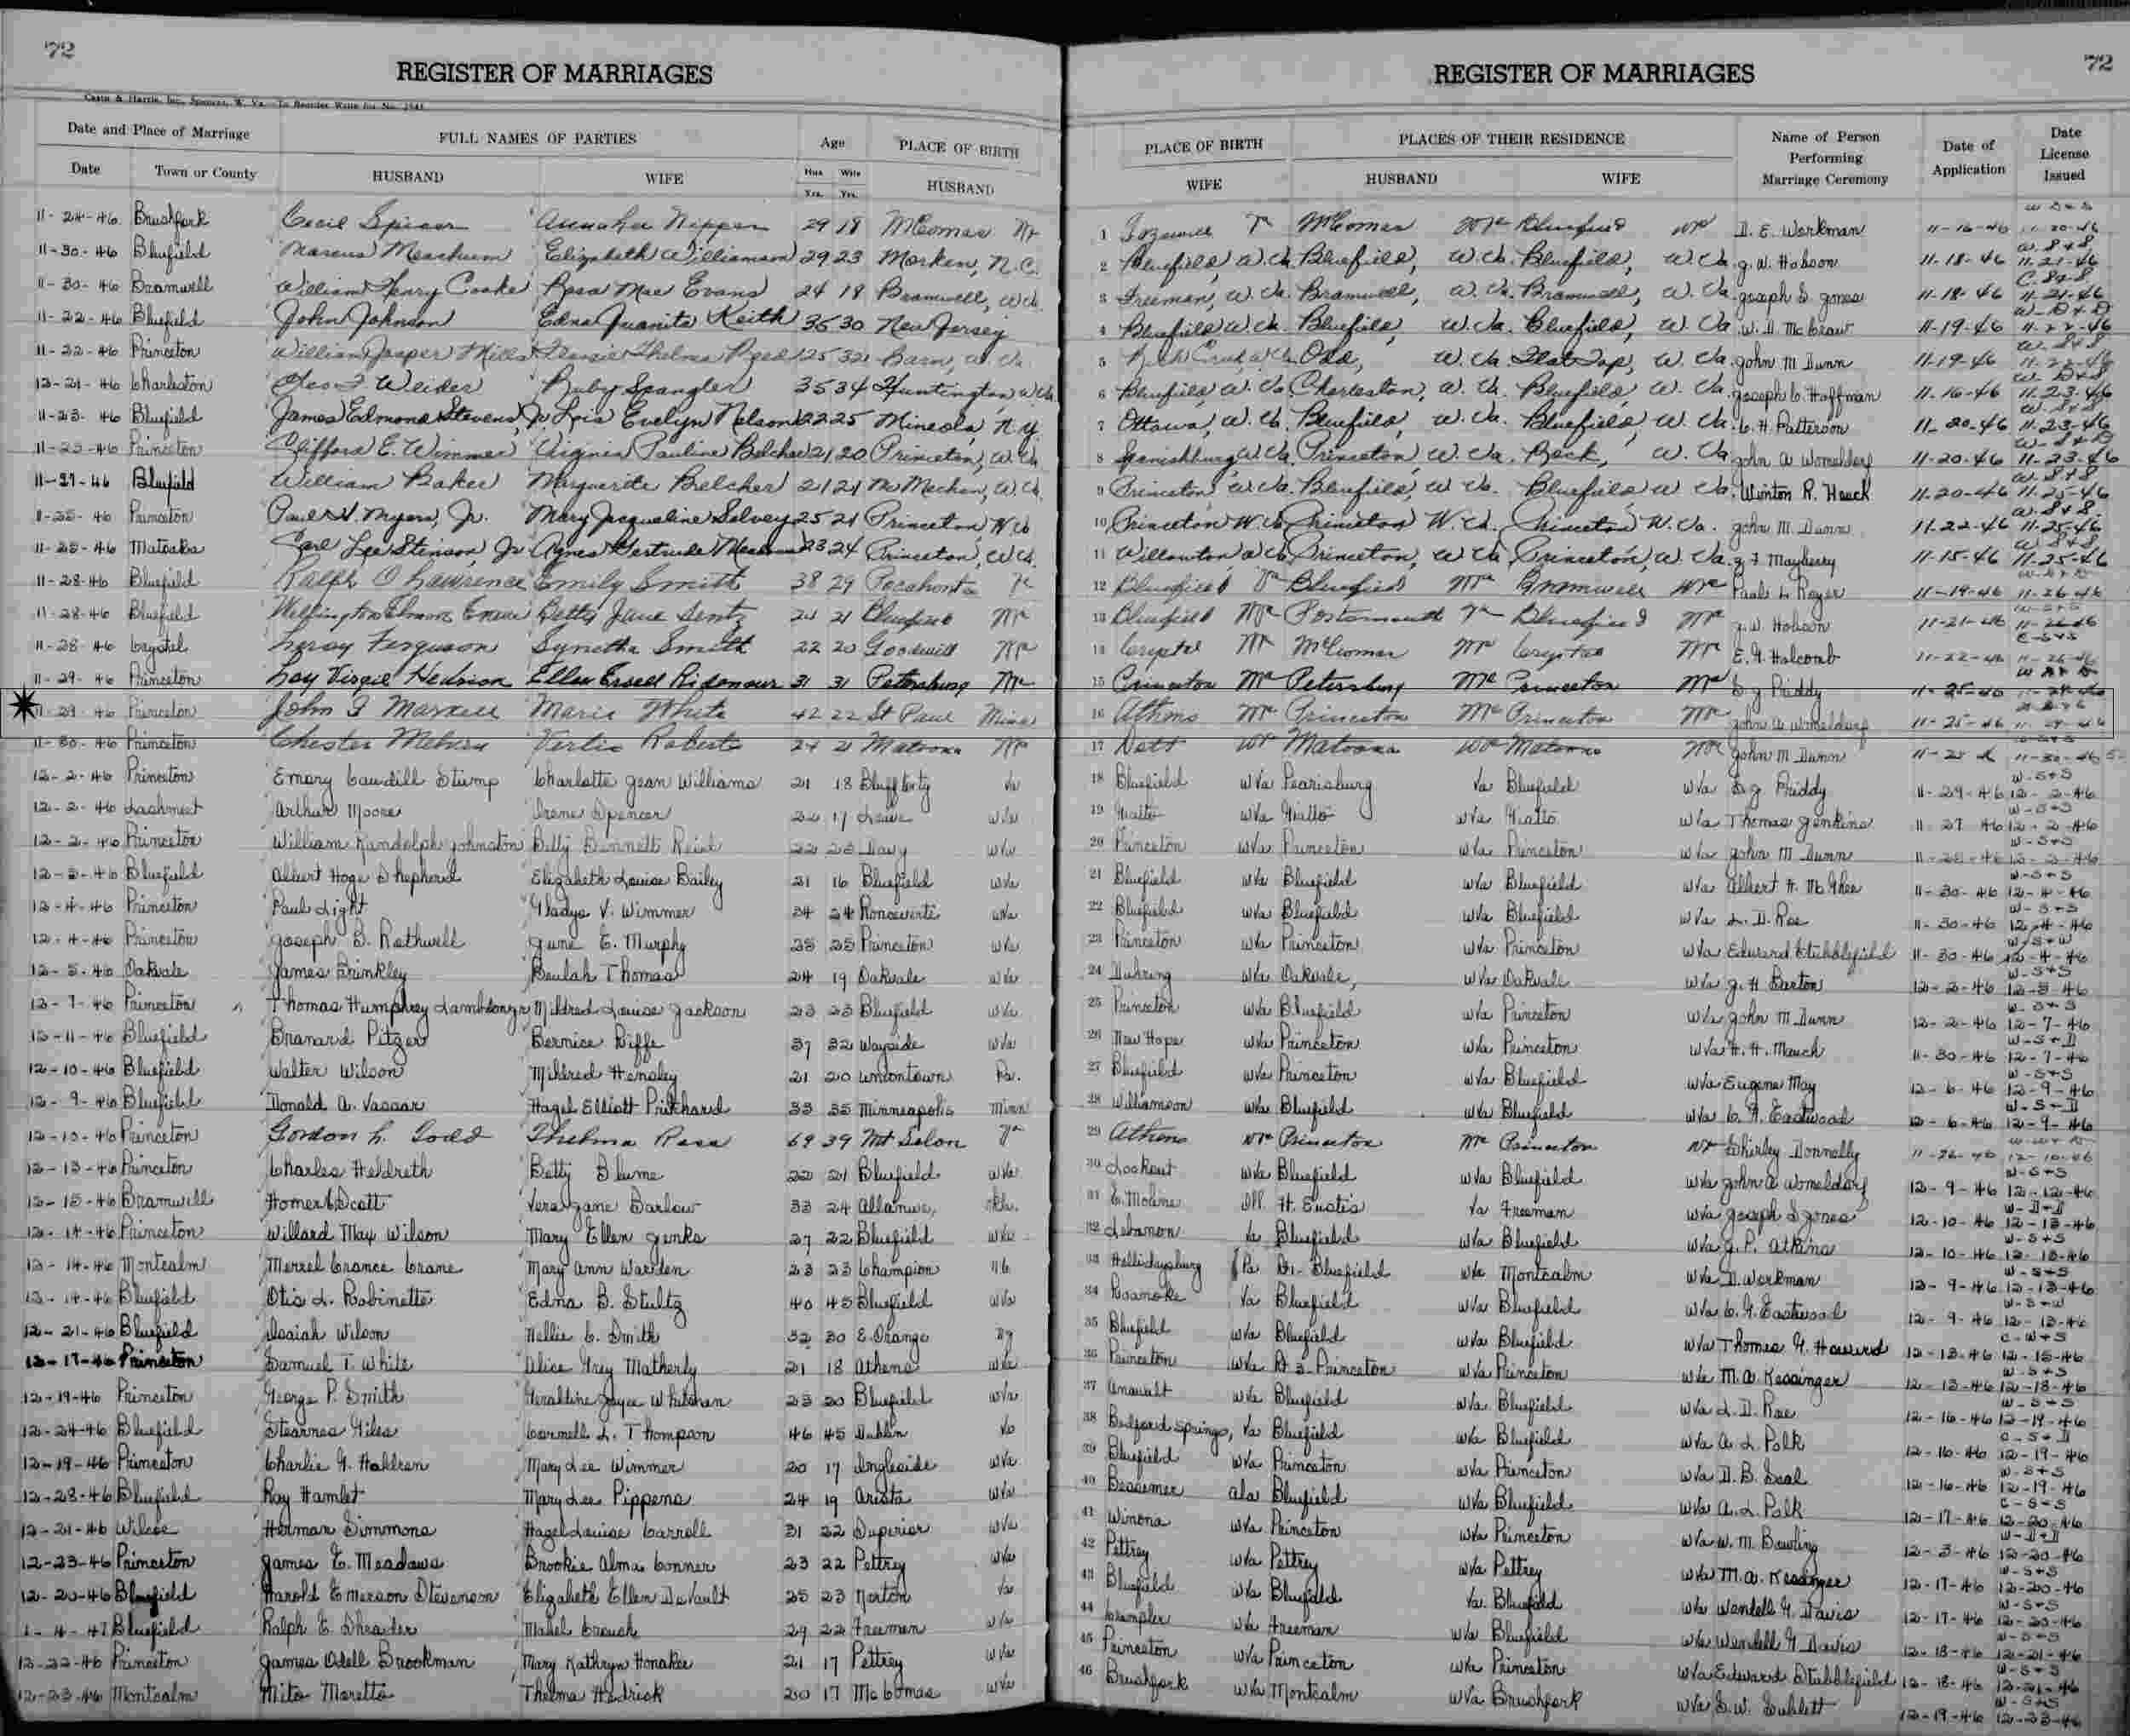 72
REGISTER OF MARRIAGES
Casto & Harris, Inc., Spencer, W. Va. To Reorder Write for No.
Date and Place of Marriage FULL NAMES OF PARTIES Age PLACE OF BIRTH
Date Town or County HUSBAND WIFE Hus. Yrs. Wife Yrs. HUSBAND
11-24-46 Brushfork Cecil Spicer 29 18 McComas
11-30-46 Bluefield Marcus Meachum Elizabeth Williamson 29 23 N.C.
11-30-46 Bramwell William Henry Cooke Rosa Mae Evans 24 18 Bramwell, W.Va.
11-22-46 Bluefield John Johnson Edna Juanita Keith 35 30 New Jersey
11-22-46 Princeton William Jasper Mills Thelma 25 32 W. Va.
12-21-46 Charleston Weider Ruby Spangler 35 34 Huntington, W.Va.
11-23-46 Bluefield James Edmond Stevens, Jr. Lois Evelyn Nelson 22 25 Mineola, N.Y.
11-23-46 Princeton Clifford E. Wimmer Virginia Pauline Belcher 21 20 Princeton, W.Va.
11-27-46 Bluefield William Baker Marguerite Belcher 21 21 McMechen, W.Va.
11-25-46 Princeton Paul H. Myers, Jr. Mary Jacqueline Selvey 25 21 Princeton, W.Va.
11-25-46 Matoaka Carl Lee Stinson, Jr. Agnes Gertrude 23 24 Princeton, W.Va.
11-28-46 Bluefield Ralph O Lawrence Emily Smith 38 29 Pocahontas Va
11-28-46 Bluefield Wellington Betty Jane Sentz 24 21 Bluefield WVa
11-28-46 Crystal Leroy Ferguson Synetha Smith 22 20 Goodwill WVa
11-29-46 Princeton Loy Virgil Hudson Ellen Ridenour 31 31 Petersburg WVa
11-29-46 Princeton John Marie White 42 22 St Paul Minn
11-30-46 Princeton Chester Vertie Roberts 24 21 Matoaka WVa
12-2-46 Princeton Emory Caudill Stump Charlotte Jean Williams 21 18 Bluff City Va
12-2-46 Lashmeet Arthur Moore Irene Spencer 22 17 WVa
12-2-46 Princeton William Randolph Johnston Betty Bennett Reid 22 Davy WVa
12-3-46 Bluefield Albert Hoge Shepherd Elizabeth Louise Bailey 21 16 Bluefield WVa
12-4-46 Princeton Paul Light Gladys V. Wimmer 34 24 Ronceverte WVa
12-4-46 Princeton Joseph B. Rothwell June E. Murphy 25 25 Princeton WVa
12-5-46 Oakvale James Brinkley Beulah Thomas 24 19 Oakvale WVa
12-7-46 Princeton Thomas Humphrey Mildred Louise Jackson 23 23 Bluefield WVa
12-11-46 Bluefield Branard Pitzer Bernice Riffe 37 32 Wayside WVa
12-10-46 Bluefield Walter Wilson Mildred Hensley 21 20 Uniontown Pa.
12-9-46 Bluefield Donald A. Vassar Hazel Elliott Pritchard 33 35 Minneapolis Minn
12-10-46 Princeton Gordon L. Todd Thelma Rose 69 39 Mt Solon Va
12-13-46 Princeton Charles Heldreth Betty Blume 22 21 Bluefield WVa
12-15-46 Bramwell Homer Scott Vera Jane Barlow 33 24
12-14-46 Princeton Willard May Wilson Mary Ellen Jenks 27 22 Bluefield WVa
12-14-46 Montcalm Merrel Crance Crane Mary Ann Warden 23 23 Champion
12-14-46 Bluefield Otis L. Robinette Edna B. Stultz 40 45 Bluefield WVa
12-21-46 Bluefield Isaiah Wilson Nellie C. Smith 32 30 E. Orange
12-17-46 Princeton Samuel T. White Alice Grey Matherly 21 18 Athens WVa
12-19-46 Princeton George P. Smith Geraldine Joyce 23 20 Bluefield WVa
12-24-46 Bluefield Stearnes Giles Cornell L. Thompson 46 45 Dublin Va
12-19-46 Princeton Charlie G. Haldren Mary Lee Wimmer 20 17 Ingleside WVa
12-28-46 Bluefield Roy Hamlet Mary Lee Pippens 24 19 Arista WVa
12-21-46 Wilcoe Herman Simmons Hazel Louise Carroll 31 22 Superior WVa
12-23-46 Princeton James E. Meadows Brookie Alma Conner 23 22 Pettrey WVa
12-20-46 Bluefield Harold Emerson Stevenson Elizabeth Ellen DeVault 25 23 Norton Va
1-4-47 Bluefield Ralph E. Shrader Mabel Crouch 29 22 Freeman WVa
12-22-46 Princeton James Odell Brookman Mary Kathryn Honaker 21 17 Pettrey WVa
12-23-46 Montcalm Mito Moretto Thelma Hedrick 20 17 McComas WVa
72
REGISTER OF MARRIAGES
PLACE OF BIRTH PLACES OF THEIR RESIDENCE Name of Person Performing Marriage Ceremony Date of Application Date License Issued
WIFE HUSBAND WIFE
1 Tazewell Va McComas WVa Bluefield WVa D. E. Workman 11-16-46 11-20-46
2 Bluefield, W.Va. Bluefield, W.Va. Bluefield, W.Va. G. W. Hobson 11-18-46 11-21-46
3 Freeman, W.Va. Bramwell, W.Va. Bramwell, W.Va. Joseph S. Jones 11-18-46 11-21-46
4 Bluefield W.Va. Bluefield, W.Va. Bluefield, W.Va. W. D. McGraw 11-19-46 11-22-46
5 W.Va. Odd, W.Va. Flat Top, W.Va. John M Dunn 11-19-46 11-22-46
6 Bluefield, W.Va. Charleston, W.Va. Bluefield, W.Va. Joseph C. Hoffman 11-16-46 11-23-46
7 Ottawa, W.Va. Bluefield, W.Va. Bluefield, W.Va. C. H. Patterson 11-20-46 11-23-46
8 Spanishburg, W.Va. Princeton, W.Va. Rock, W.Va. John A Womeldorf 11-20-46 11-23-46
9 Princeton, W.Va. Bluefield, W.Va. Bluefield W.Va. Winton R. Hauck 11-20-46 11-25-46
10 Princeton W.Va. Princeton W.Va. Princeton W.Va. John M. Dunn 11-22-46 11-25-46
11 Willowton, W.Va. Princeton, W.Va. Princeton, W.Va. Mayberry 11-15-46 11-25-46
12 Bluefield Va Bluefield WVa Bramwell WVa Paul L Royer 11-19-46 11-26-46
13 Bluefield WVa Portsmouth Va Bluefield WVa G. W. Hobson 11-21-46 11-26-46
14 Crystal WVa McComas WVa Crystal WVa E. G. Holcomb 11-22-46 11-26-46
15 Princeton WVa Petersburg WVa Princeton WVa Priddy 11-25-46
16 Athens WVa Princeton WVa Princeton WVa John A Womeldorf 11-25-46
17 Nott WVa Matoaka WVa Matoaka WVa John M Dunn 11-30-46
18 Bluefield WVa Pearisburg Va Bluefield WVa Priddy 11-29-46 12-2-46
19 Giatto WVa Giatto WVa Giatto WVa Thomas Jenkins 11-27-46 12-2-46
20 Princeton WVa Princeton WVa Princeton WVa John M Dunn 11-28-46 12-2-46
21 Bluefield WVa Bluefield WVa Bluefield WVa Albert H. McGhee 11-30-46 12-4-46
22 Bluefield WVa Bluefield WVa Bluefield WVa L. D. Roe 11-30-46 12-4-46
23 Princeton WVa Princeton WVa Princeton WVa Edward Stubblefield 11-30-46 12-4-46
24 Duhring WVa Oakvale, WVa Oakvale WVa J. H. Barton 12-2-46 12-5-46
25 Princeton WVa Bluefield WVa Princeton WVa John M Dunn 12-2-46 12-7-46
26 New Hope WVa Princeton WVa Princeton WVa H. H. Mauck 11-30-46 12-7-46
27 Bluefield WVa Princeton WVa Bluefield WVa Eugene May 12-6-46 12-9-46
28 Williamson WVa Bluefield WVa Bluefield WVa C. G. Eastwood 12-6-46 12-9-46
29 Athens WVa Princeton WVa Princeton WVa Shirley Donnally 11-26-46 12-10-46
30 Lookout WVa Bluefield WVa Bluefield WVa John A Womeldorf 12-9-46 12-12-46
31 E. Moline Ill Ft. Eustis Va Freeman WVa Joseph S Jones 12-10-46 12-13-46
32 Lebanon Va Bluefield WVa Bluefield WVa J. P. Atkins 12-10-46 12-13-46
33 Hollidaysburg Pa Rt 1- Bluefield WVa Montcalm WVa D. Workman 12-9-46 12-13-46
34 Roanoke Va Bluefield WVa Bluefield WVa C. G. Eastwood 12-9-46 12-13-46
35 Bluefield WVa Bluefield WVa Bluefield WVa Thomas G. Howard 12-13-46 12-15-46
36 Princeton WVa Rt 3- Princeton WVa Princeton WVa M. A. Kessinger 12-13-46 12-18-46
37 Anawalt WVa Bluefield WVa Bluefield WVa L. D. Roe 12-16-46 12-19-46
38 Bedford Springs, Va Bluefield WVa Bluefield WVa A. L. Polk 12-16-46 12-19-46
39 Bluefield WVa Princeton WVa Princeton WVa D. B. Seal 12-16-46 12-19-46
40 Bessemer Ala Bluefield WVa Bluefield WVa A. L. Polk 12-17-46 12-20-46
41 Winona WVa Princeton WVa Princeton WVa W. M. Bowling 12-3-46 12-20-46
42 Pettrey WVa Pettrey WVa Pettrey WVa M. A. Kessinger 12-17-46 12-20-46
43 Bluefield WVa Bluefield Va Bluefield WVa Wendell G. Davis 12-17-46 12-20-46
44 Crumpler WVa Freeman WVa Bluefield WVa Wendell G Davis 12-18-46 12-21-46
45 Princeton WVa Princeton WVa Princeton WVa Edward Stubblefield 12-18-46 12-21-46
46 Brushfork WVa Montcalm WVa Brushfork WVa S. W. Sublett 12-19-46 12-23-46